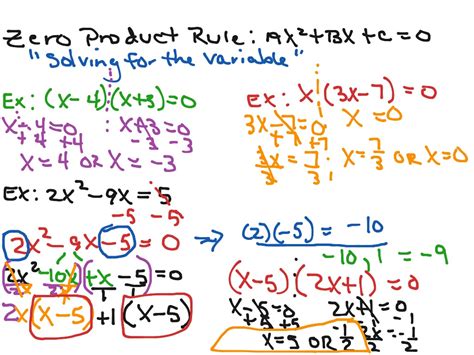 Zero Product Rule: AX²+BX+C=0
"Solving for the variable"
Ex: (x-4)(x+3)=0
x-4=0 x+3=0
+4 +4 -3 -3
x=4 or x=-3
Ex: x(3x-7)=0
3x-7=0 x=0
+7 +7
3x/3=7/3 x=7/3 or x=0
Ex: 2x²-9x=5
-5 -5
2x²-9x-5=0 → (2)(-5)=-10
-10, 1 = -9
(2x²-10x)(+x-5)=0
2x 2x 1 1
2x(x-5)+1(x-5)
(x-5)(2x+1)=0
x-5=0 2x+1=0
+5 +5 -1 -1
2x/2=-1/2
x=5 or -1/2